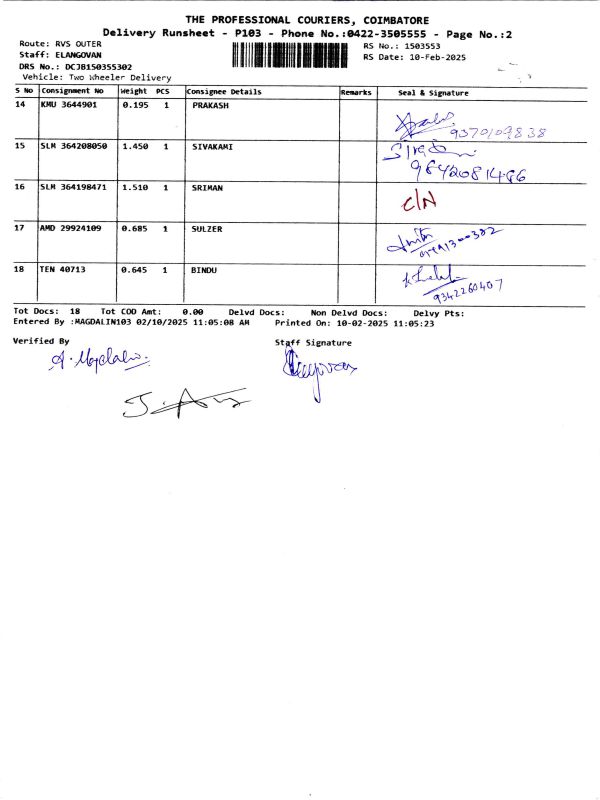 THE PROFESSIONAL COURIERS, COIMBATORE
Delivery Runsheet - P103 - Phone No.:0422-3505555 - Page No.:2
Route: RVS OUTER
RS No.: 1503553
Staff: ELANGOVAN
RS Date: 10-Feb-2025
DRS No.: DCJB150355302
Vehicle: Two Wheeler Delivery
S No Consignment No Weight PCS Consignee Details Remarks Seal & Signature
14 KMU 3644901 0.195 1 PRAKASH
9370109838
15 SLM 364208050 1.450 1 SIVAKAMI
9842081486
16 SLM 364198471 1.510 1 SRIMAN
C/N
17 AMD 29924109 0.685 1 SULZER
18 TEN 40713 0.645 1 BINDU
9342260407
Tot Docs: 18 Tot COD Amt: 0.00 Delvd Docs: Non Delvd Docs: Delvy Pts:
Entered By :MAGDALIN103 02/10/2025 11:05:08 AM Printed On: 10-02-2025 11:05:23
Verified By Staff Signature
A. Magdalin